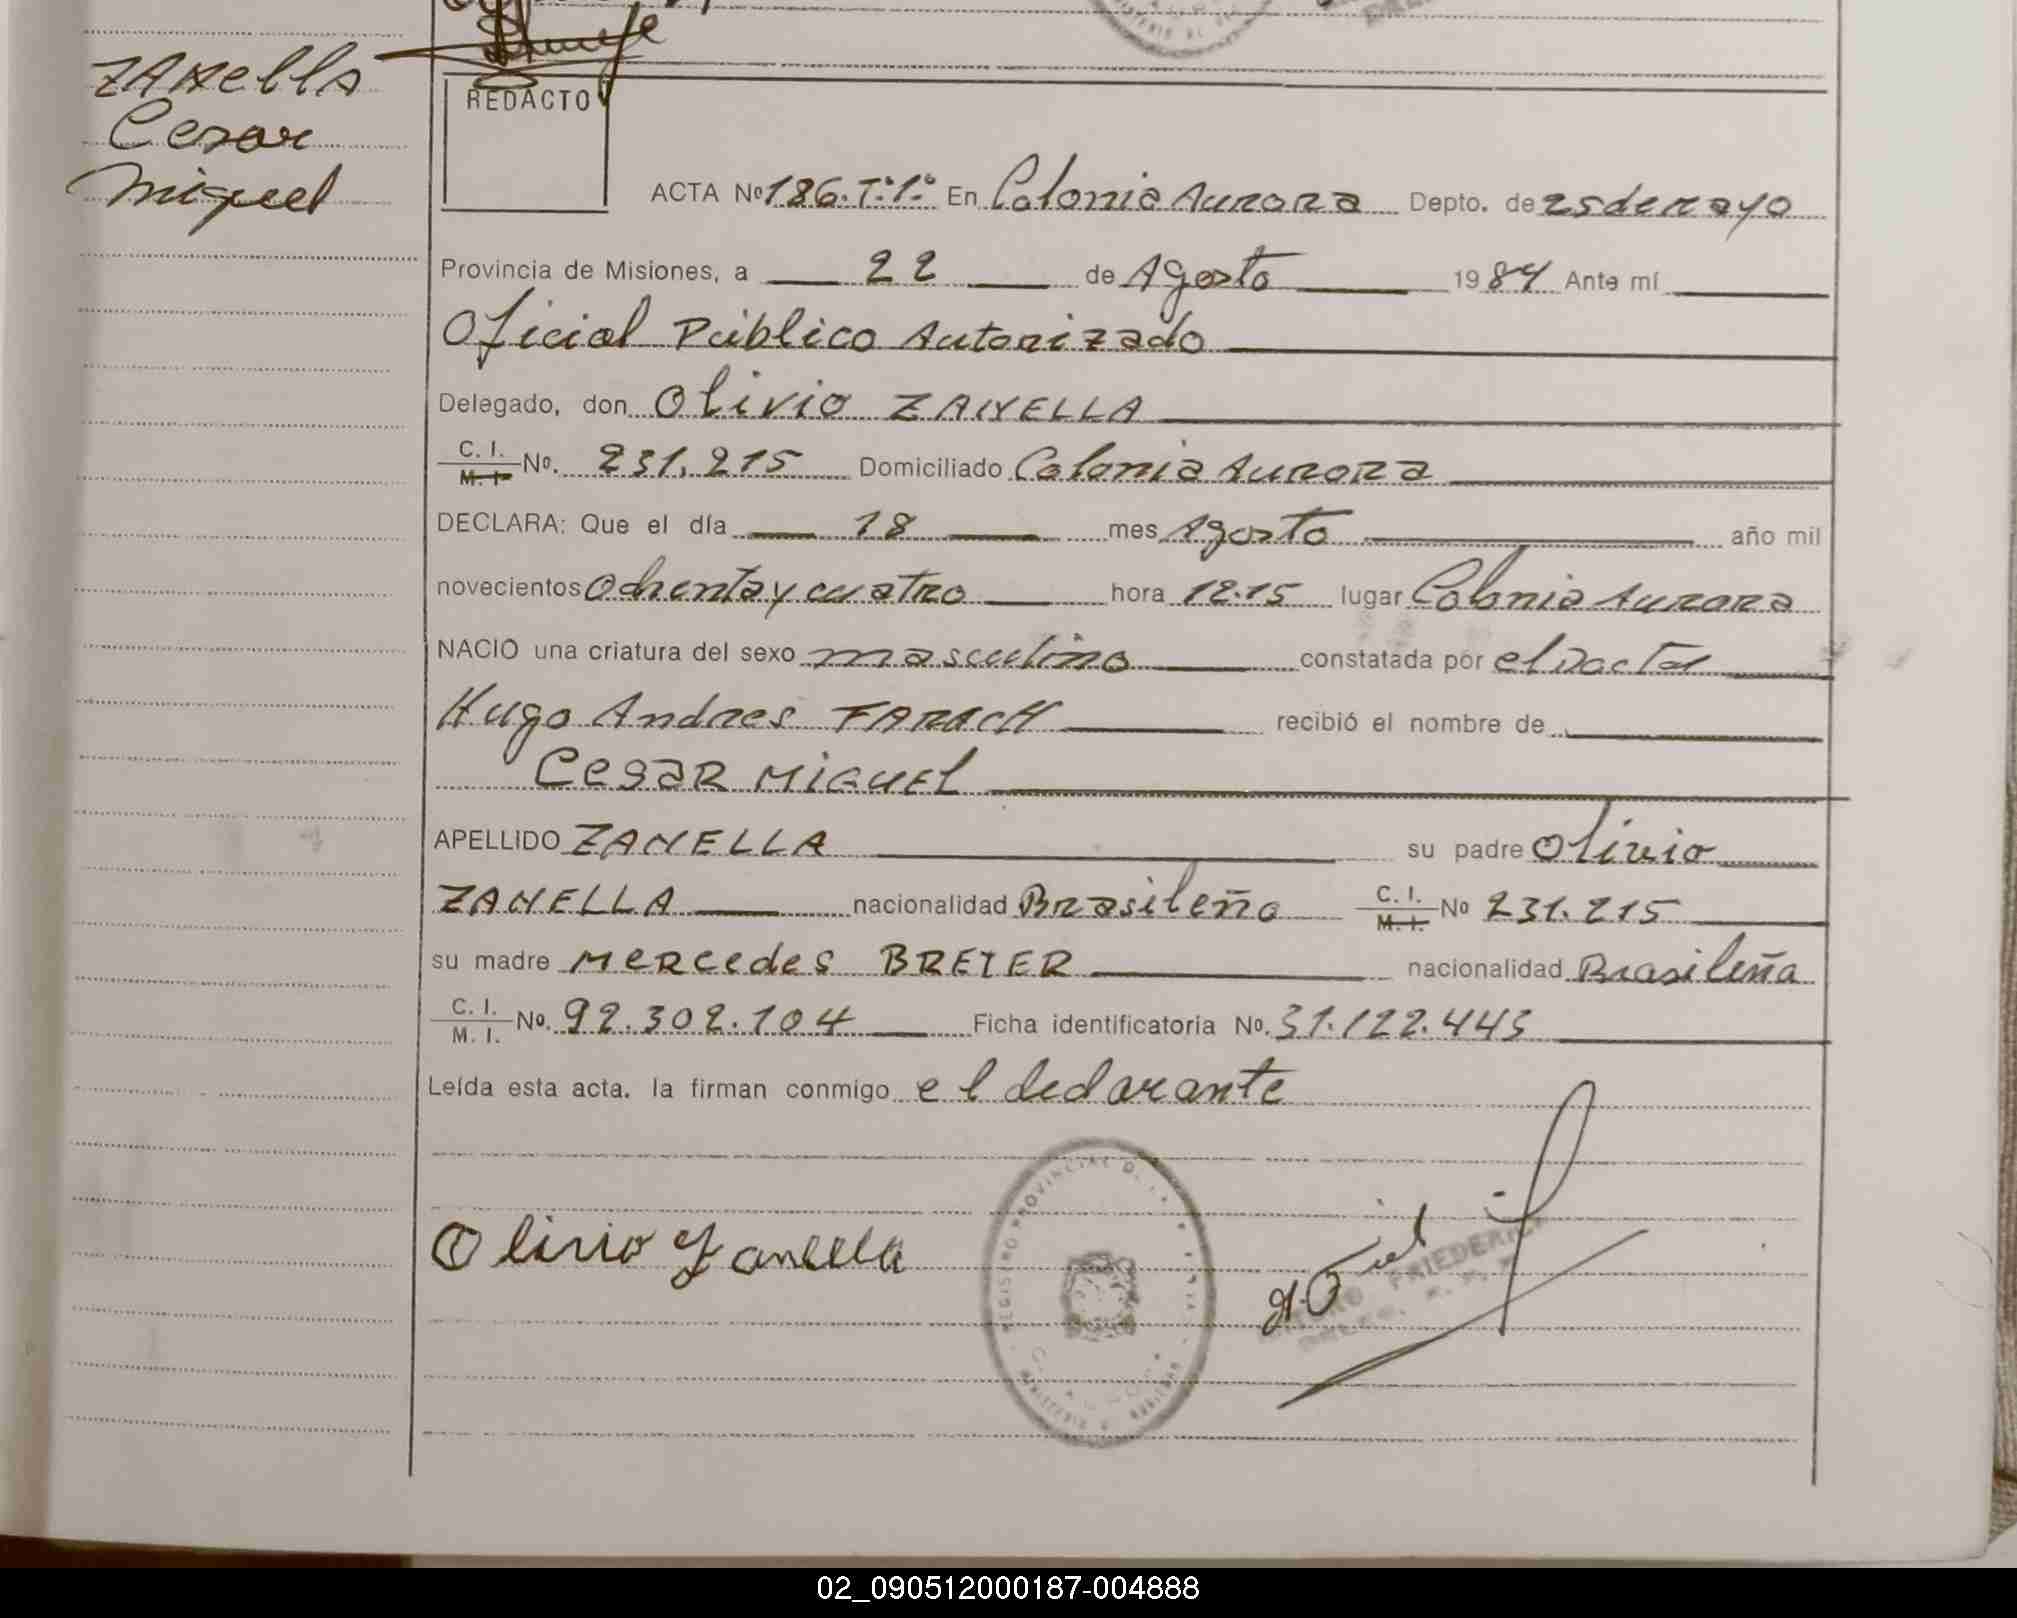 ZANella
Cesar
Miguel
REDACTO
ACTA Nº 186.Tº1º En Colonia Aurora Depto. de 25 de mayo
Provincia de Misiones, a 22 de Agosto 1984 Ante mí
Oficial Público Autorizado
Delegado, don Olivio ZANELLA
C. I. M. I. Nº. 231.215 Domiciliado Colonia Aurora
DECLARA: Que el día 18 mes Agosto año mil
novecientos Ochenta y cuatro hora 12.15 lugar Colonia Aurora
NACIO una criatura del sexo masculino constatada por el Doctor
Hugo Andres FARACH recibió el nombre de
Cesar Miguel
APELLIDO ZANELLA su padre Olivio
ZANELLA nacionalidad Brasileño C. I. M. I. Nº 231.215
su madre Mercedes BREIER nacionalidad Brasileña
C. I. M. I. Nº. 92.302.104 Ficha identificatoria Nº. 31.122.443
Leída esta acta. la firman conmigo el declarante
Olivio Zanella
REGISTRO PROVINCIAL DE LAS PERSONAS
02_090512000187-004888